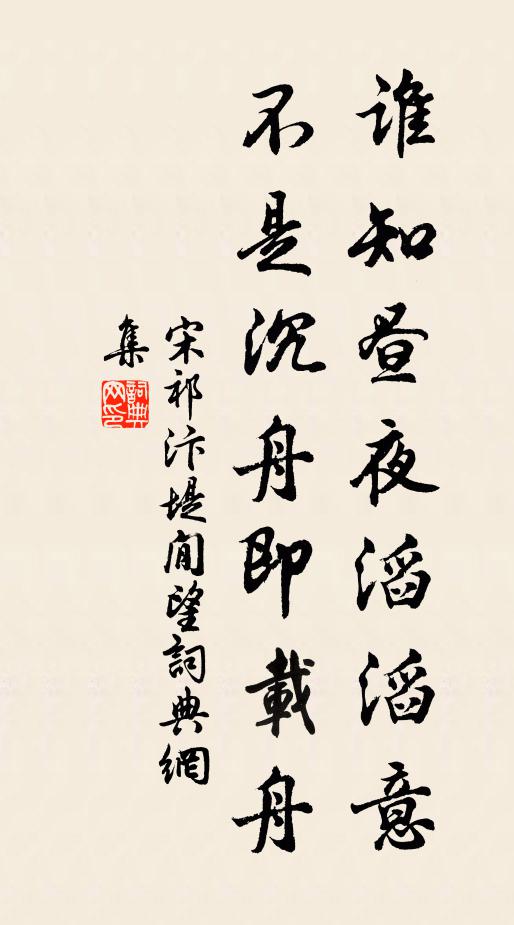 誰知昼夜滔滔意
不是沉舟即載舟
宋祁汴堤閒望詞典網
集
詞典网印